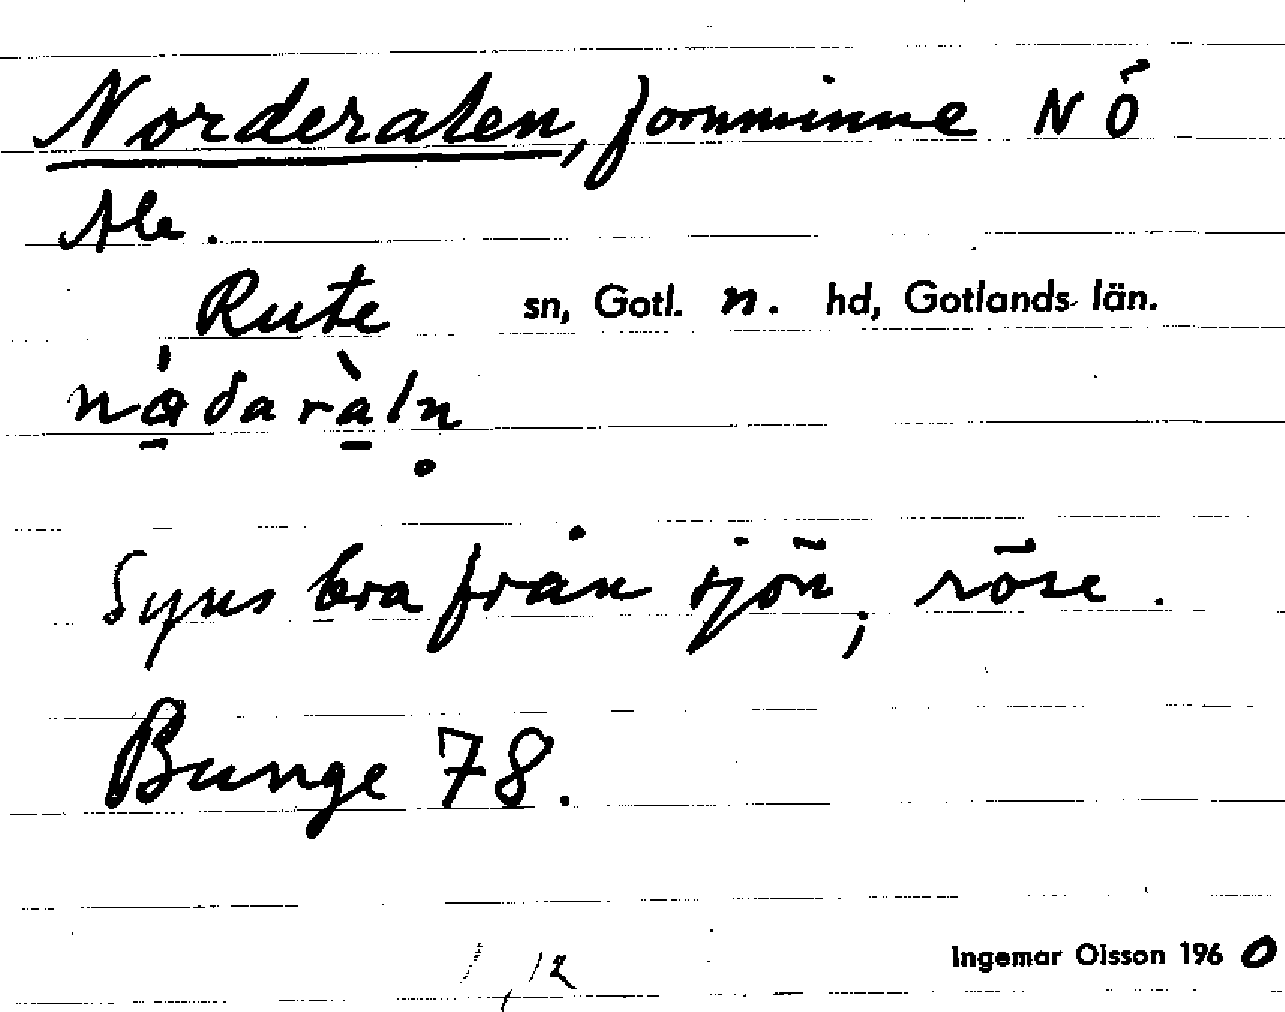 Norderalen, fornminne NÖ
Ale.
Rute sn, Gotl. n. hd, Gotlands län.
Syns bra från sjön; röse.
Bunge 78.
Ingemar Olsson 1960